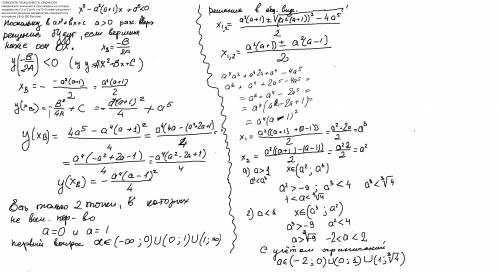 x² - a²(a+1)x + a⁵<0
a>0
решения будут, если вершина
ниже оси OX. x_B = -B/2A
y(-B/2A) < 0 (y = Ax²+Bx+C)
x_B = - -a²(a+1)/2 = a²(a+1)/2
y(x_B) = -B²/4A + C = -a⁴(a+1)²/4 + a⁵
y(x_B) = 4a⁵ - a⁴(a+1)²/4 = a⁴(4a - (a²+2a+1))/4
= a⁴(-a²+2a-1)/4 = -a⁴(a²-2a+1)/4
y(x_B) = -a⁴(a-1)²/4
Есть только 2 точки, в которых
не вып. нер-во
a=0 и a=1
Первый вопрос a∈(-∞;0)∪(0;1)∪(1;∞)
решения в общ. виде.
x₁,₂ = a²(a+1) ± √(a²(a+1))² - 4a⁵/2
x₁,₂ = a²(a+1) ± a²(a-1)/2
= a⁶ + a⁴ - 2a⁵ =
= a⁴(a²-2a+1) =
= a⁴(a-1)²
x₁ = a²((a+1)+(a-1))/2 = a²·2a/2 = a³
x₂ = a²((a+1)-(a-1))/2 = a²·2/2 = a²
1) a>1 x∈(a²; a³)
a²<a³
a²>-9; a³<4 a<∛4
1<a<∛4
2) a<1 x∈(a³; a²)
a³>-9 a²<4
-2<a<2
С учётом ограничений
a∈(-2;0)∪(0;1)∪(1;∛4)